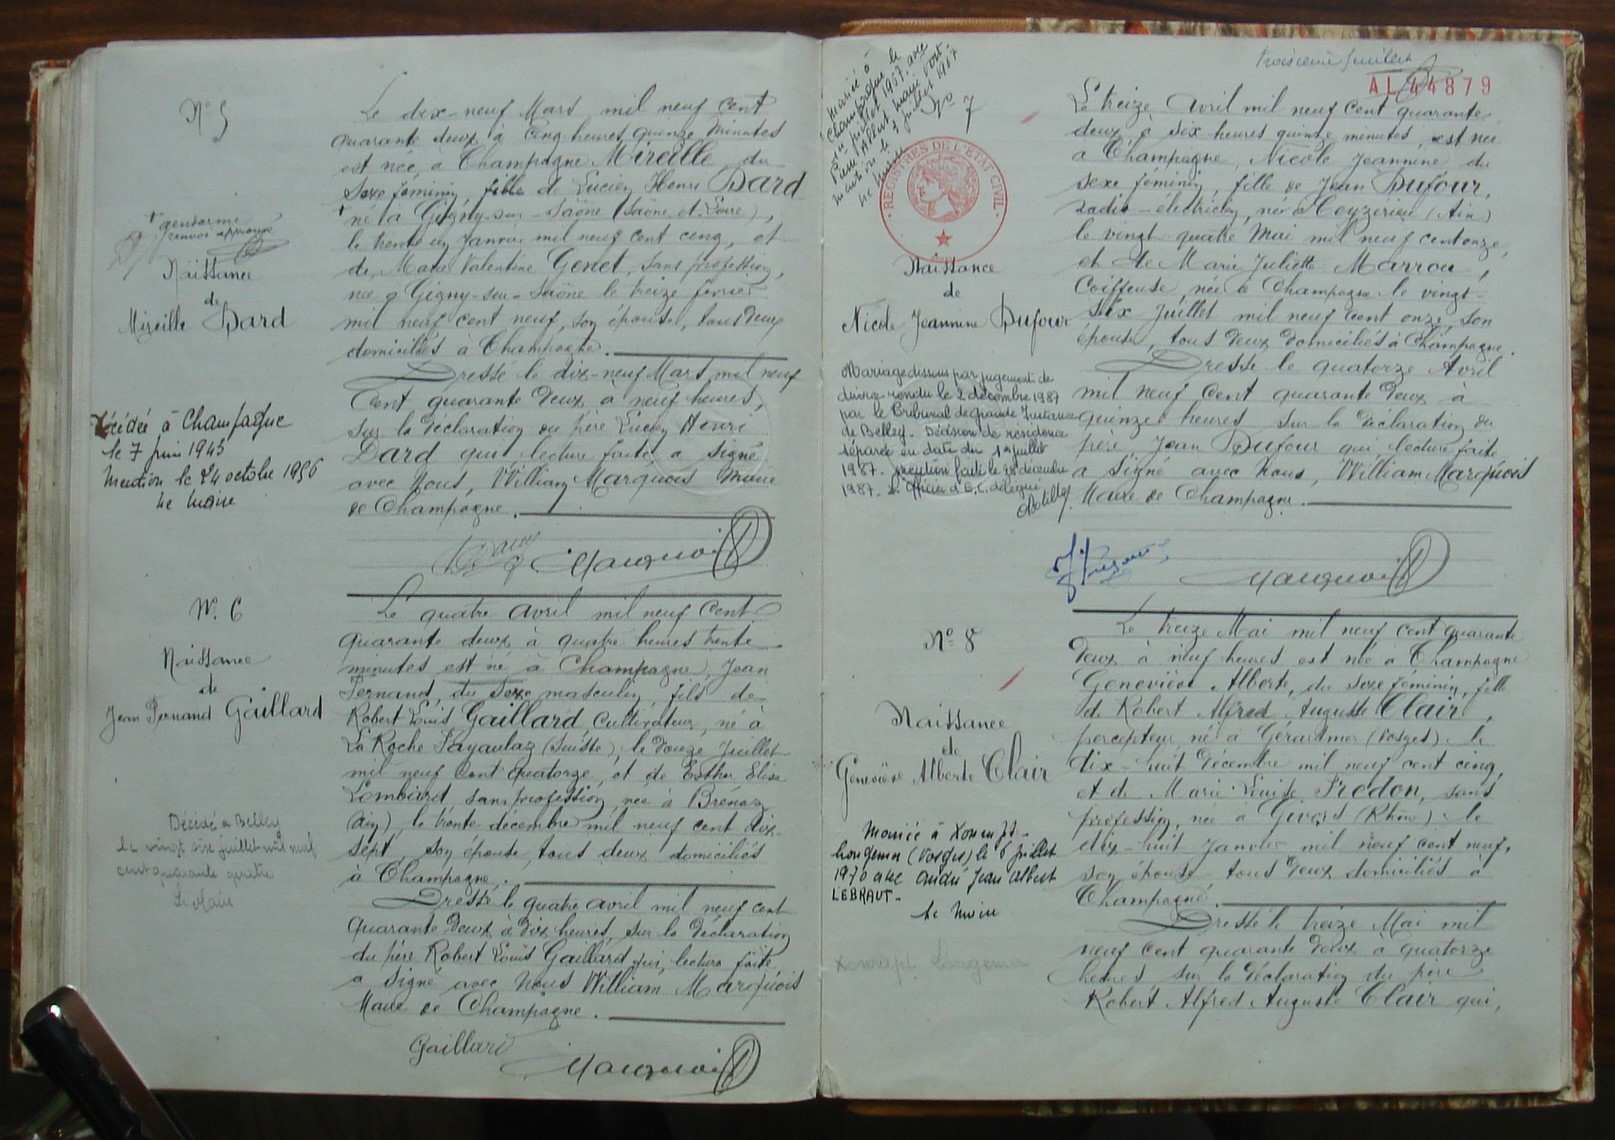 N° 5
Le dix-neuf Mars mil neuf cent
quarante deux à cinq heures quinze minutes
est née à Champagne Mireille, du
sexe féminin, fille de Lucien Henri Dard
né à Gigny-sur-Saône (Saône et Loire),
le trente un janvier mil neuf cent cinq, et
de Marie Valentine Genet, sans profession,
née à Gigny-sur-Saône le treize février
mil neuf cent neuf, son épouse, tous deux
domiciliés à Champagne.
Dressé le dix-neuf Mars mil neuf
Cent quarante deux à neuf heures,
sur la déclaration du père Lucien Henri
Dard qui lecture faite, a signé
avec Nous, William Marquois Maire
de Champagne.
+ gendarme
renvoi approuvé
Naissance
de
Mireille Dard
Décédée à Champagne
le 7 juin 1945
Mention le 24 octobre 1956
Le Maire
Marquois
N° 6
Naissance
de
Jean Fernand Gaillard
Le quatre avril mil neuf cent
quarante deux à quatre heures trente
minutes est né à Champagne, Jean
Fernand, du sexe masculin, fils de
Robert Louis Gaillard cultivateur, né à
La Roche (Suisse), le douze juillet
mil neuf cent quatorze, et de Esther Elise
sans profession, née à Brénaz
(Ain), le trente décembre mil neuf cent dix-
sept son épouse, tous deux domiciliés
à Champagne.
Dressé le quatre avril mil neuf cent
quarante deux à dix heures, sur la déclaration
du père Robert Louis Gaillard qui, lecture faite,
a signé avec Nous William Marquois
Maire de Champagne.
Décédé à Belley
le vingt six juillet mil neuf
cent quarante quatre
Le Maire
Gaillard
Marquois
troisième feuillet
AL 44879
mariée à
Champagne le
juillet 1967 avec
N° 7
REGISTRES DE L'ÉTAT CIVIL
Naissance
de
Nicole Jeannine Dufour
Le treize Avril mil neuf cent quarante
deux à six heures quinze minutes, est née
à Champagne, Nicole Jeannine du
sexe féminin, fille de Jean Dufour,
radio-électricien, né à Ceyzérieu (Ain)
le vingt quatre Mai mil neuf cent onze,
et de Marie Juliette Marrou,
Coiffeuse, née à Champagne le vingt-
six Juillet mil neuf cent onze, son
épouse, tous deux domiciliés à Champagne.
Dressé le quatorze Avril
mil neuf cent quarante deux à
quinze heures sur la déclaration du
père Jean Dufour qui, lecture faite
a signé avec Nous, William Marquois
Maire de Champagne.
Mariage dissous par jugement de
divorce rendu le 2 décembre 1987
par le Tribunal de Grande Instance
de Belley. Décision de résidence
séparée en date du 1er juillet
1987. Mention faite le décembre
1987. L'Officier d'E.C. délégué
Marquois
N° 8
Naissance
de
Geneviève Alberte Clair
Le treize Mai mil neuf cent quarante
deux à neuf heures est née à Champagne
Geneviève Alberte, du sexe féminin, fille
de Robert Alfred Auguste Clair,
percepteur né à Gérardmer (Vosges) le
dix-huit Décembre mil neuf cent cinq,
et de Marie Louise Frédon, sans
profession, née à Givors (Rhône) le
dix-huit janvier mil neuf cent neuf,
son épouse tous deux domiciliés à
Champagne.
Dressé le treize Mai mil
neuf cent quarante deux à quatorze
heures sur la déclaration du père
Robert Alfred Auguste Clair qui,
Mariée à Xonrupt-
Longemer (Vosges) le 6 juillet
1970 avec André Jean Albert
LEBRAUT.
Le Maire
Xonrupt Longemer